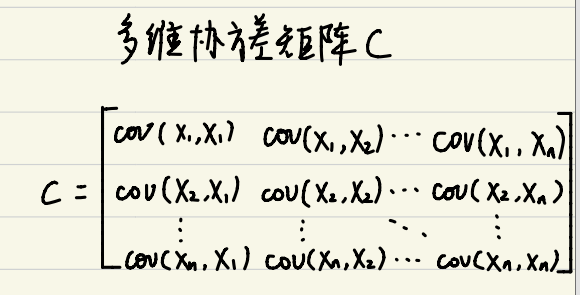 多维协方差矩阵 C
C = [ cov(X₁,X₁) cov(X₁,X₂) ⋯ cov(X₁,Xₙ)
cov(X₂,X₁) cov(X₂,X₂) ⋯ cov(X₂,Xₙ)
⋮ ⋮ ⋱ ⋮
cov(Xₙ,X₁) cov(Xₙ,X₂) ⋯ cov(Xₙ,Xₙ) ]